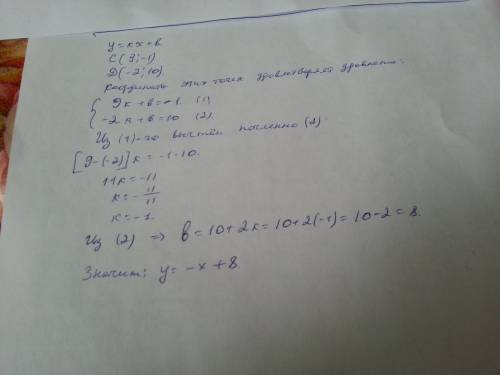 y=кx+в
C(9;-1)
D(-2;10)
Координаты этих точек удовлетворяют уравнению:
{ 9к+в=-1 (1)
-2к+в=10 (2).
Из (1)-го вычтем почленно (2)
[9-(-2)]к=-1-10.
11к=-11
к=-11/11
к=-1.
Из (2) => в=10+2к=10+2(-1)=10-2=8.
Значит: y=-x+8.